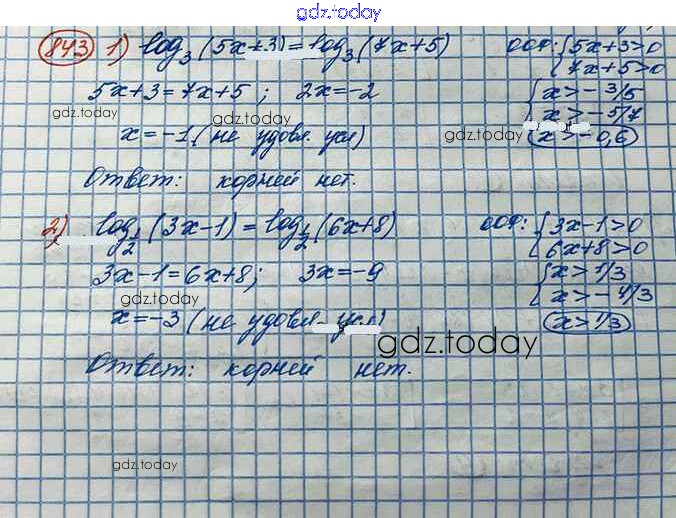 gdz.today
843 1) log₃(5x+3)=log₃(7x+5) ООФ: {5x+3>0
{7x+5>0
5x+3=7x+5; 2x=-2 {x>-3/5
gdz.today gdz.today {x>-5/7
x=-1 (не удовл. усл) gdz.today x>-0,6
Ответ: корней нет.
2) log_{1/2}(3x-1)=log_{1/2}(6x+8) ООФ: {3x-1>0
{6x+8>0
3x-1=6x+8; 3x=-9 {x>1/3
gdz.today {x>-4/3
x=-3 (не удовл. усл) x>1/3
gdz.today
Ответ: корней нет.
gdz.today gdz.today